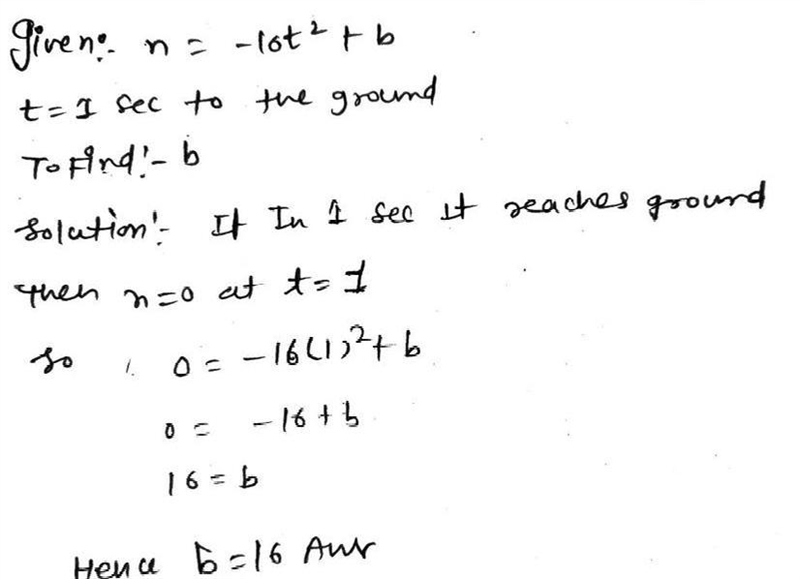 Given:- n = -16t² + b
t = 1 sec to the ground
To Find:- b
Solution:- If In 1 sec it reaches ground
then n=0 at t=1
So , 0 = -16(1)² + b
0 = -16 + b
16 = b
Hence b=16 Ans